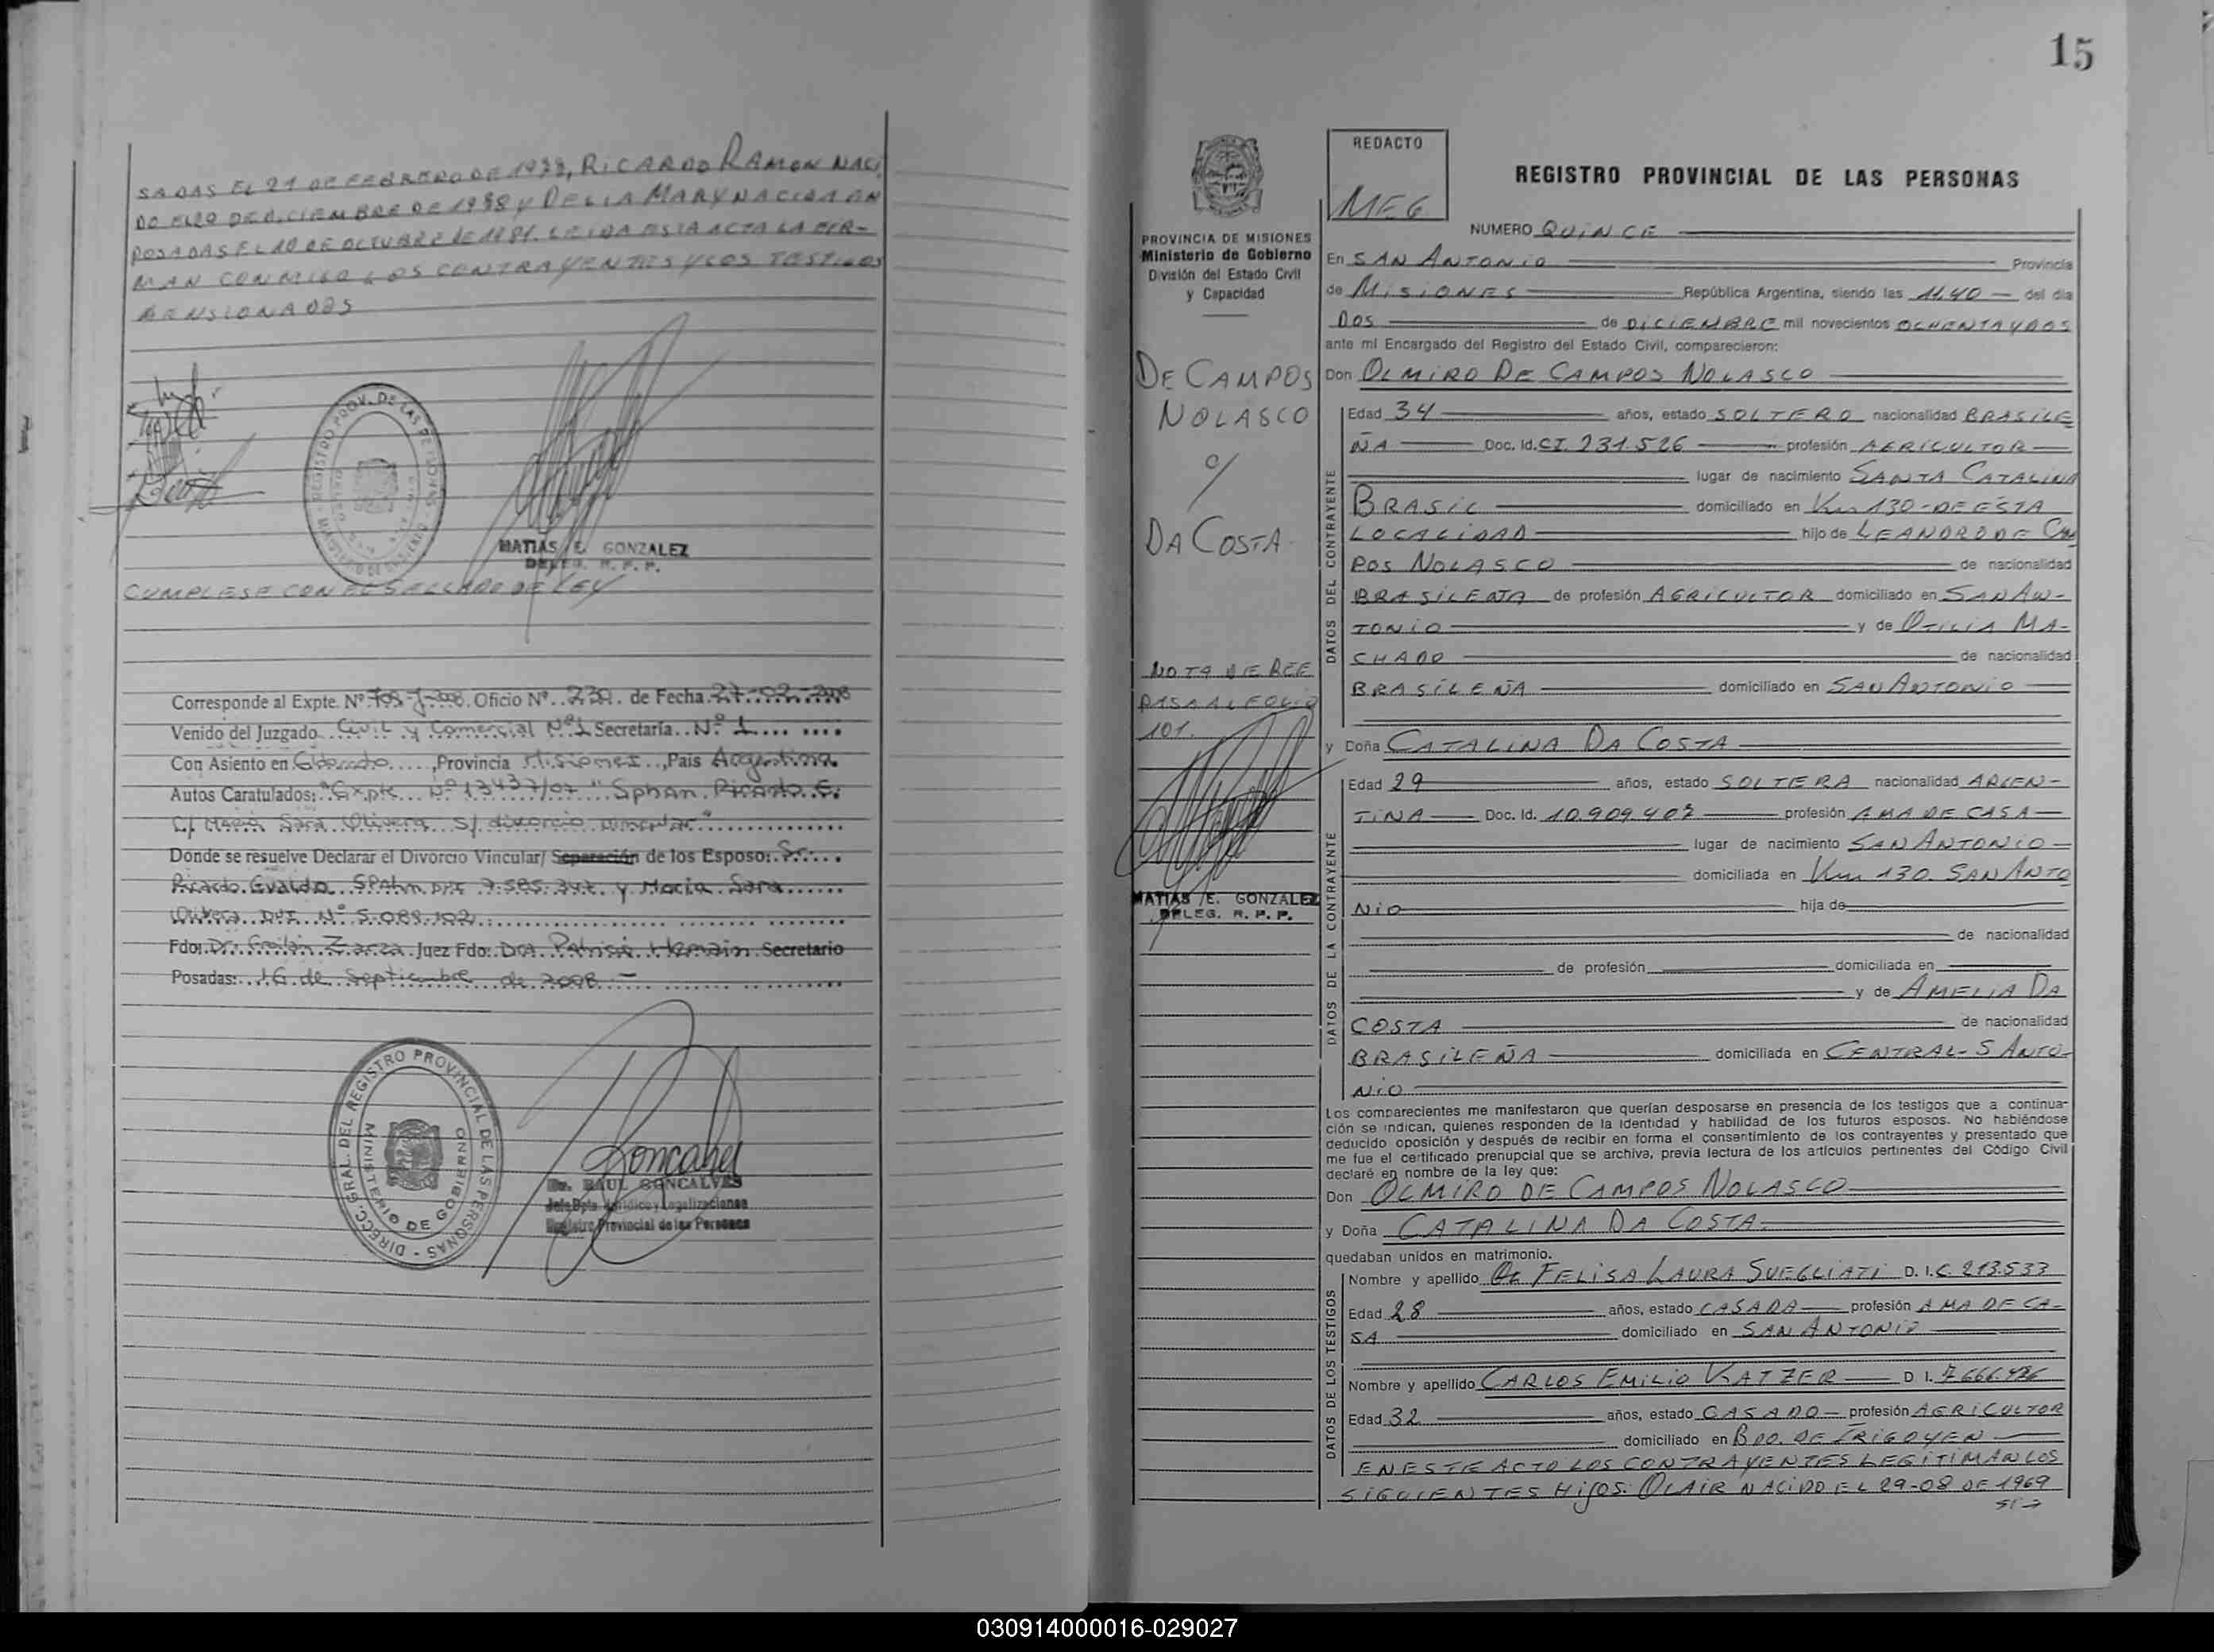 SADAS EL 21 DE FEBRERO DE 19, RICARDO RAMON NACI
DO EL DE DICIEMBRE DE 19 Y DELIA MARY NACIDA EN
POSADAS EL 10 DE OCTUBRE DE 1981. LEIDA ESTA ACTA LA FIR-
MAN CONMIGO LOS CONTRAYENTES Y LOS TESTIGOS
MENSIONADOS
MATIAS E. GONZALEZ
DELEG. R. P. P.
CUMPLESE CON EL SELLADO DE LEY
Corresponde al Expte. Nº Oficio Nº 230. de Fecha 27-02-2008
Venido del Juzgado Civil y Comercial Nº 1 Secretaría Nº 1
Con Asiento en Eldorado, Provincia Misiones, País Argentina
Autos Caratulados: "Expte Nº 13437/07 "Sphan Ricardo E.
C/ María Sara Olivera S/ divorcio vincular"
Donde se resuelve Declarar el Divorcio Vincular/ Separación de los Esposo: Sr.
Ricardo Evaldo SPAhn DNI 7.585.347 y Maria Sara
Olivera DNI Nº 5.089.102
Fdo: Dr. Froilán Zarza Juez Fdo: Dra. Patricia Secretario
Posadas: 16 de Septiembre de 2008
DIRECC. GRAL. DEL REGISTRO PROVINCIAL DE LAS PERSONAS
MINISTERIO DE GOBIERNO
Dr. RAUL GONCALVES
Jefe Dpto. Jurídico y Legalizaciones
Registro Provincial de las Personas
15
REDACTO
MEG
REGISTRO PROVINCIAL DE LAS PERSONAS
PROVINCIA DE MISIONES
Ministerio de Gobierno
División del Estado Civil
y Capacidad
DE CAMPOS
NOLASCO
c/
DA COSTA
NOTA DE REF
PASA AL FOLIO
101.
MATIAS E. GONZALEZ
DELEG. R. P. P.
NUMERO QUINCE
En SAN ANTONIO Provincia
de MISIONES República Argentina, siendo las 11,40 del día
DOS de DICIEMBRE mil novecientos OCHENTA Y DOS
ante mí Encargado del Registro del Estado Civil, comparecieron:
Don OLMIRO DE CAMPOS NOLASCO
DATOS DEL CONTRAYENTE
Edad 34 años, estado SOLTERO nacionalidad BRASILE
ÑA Doc. Id. CI. 231.526 profesión AGRICULTOR
lugar de nacimiento SANTA CATALINA
BRASIL domiciliado en Km 130 - DE ESTA
LOCALIDAD hijo de LEANDRO DE CAM
POS NOLASCO de nacionalidad
BRASILEÑA de profesión AGRICULTOR domiciliado en SAN AN-
TONIO y de OTILIA MA-
CHADO de nacionalidad
BRASILEÑA domiciliado en SAN ANTONIO
y Doña CATALINA DA COSTA
DATOS DE LA CONTRAYENTE
Edad 29 años, estado SOLTERA nacionalidad ARGEN-
TINA Doc. Id. 10.909.407 profesión AMA DE CASA
lugar de nacimiento SAN ANTONIO
domiciliada en Km 130. SAN ANTO
NIO hija de
de nacionalidad
de profesión domiciliada en
y de AMELIA DA
COSTA de nacionalidad
BRASILEÑA domiciliada en CENTRAL - S ANTO-
NIO
Los comparecientes me manifestaron que querían desposarse en presencia de los testigos que a continua-
ción se indican, quienes responden de la identidad y habilidad de los futuros esposos. No habiéndose
deducido oposición y después de recibir en forma el consentimiento de los contrayentes y presentado que
me fue el certificado prenupcial que se archiva, previa lectura de los artículos pertinentes del Código Civil
declaré en nombre de la ley que:
Don OLMIRO DE CAMPOS NOLASCO
y Doña CATALINA DA COSTA
quedaban unidos en matrimonio.
DATOS DE LOS TESTIGOS
Nombre y apellido FELISA LAURA SUEGLIATI D. I. C. 213.533
Edad 28 años, estado CASADA profesión AMA DE CA-
SA domiciliado en SAN ANTONIO
Nombre y apellido CARLOS EMILIO KATZER D I. 7.666.486
Edad 32 años, estado CASADO profesión AGRICULTOR
domiciliado en BDO. DE IRIGOYEN
EN ESTE ACTO LOS CONTRAYENTES LEGITIMAN LOS
SIGUIENTES HIJOS: OLAIR NACIDO EL 29-08 DE 1969
030914000016-029027